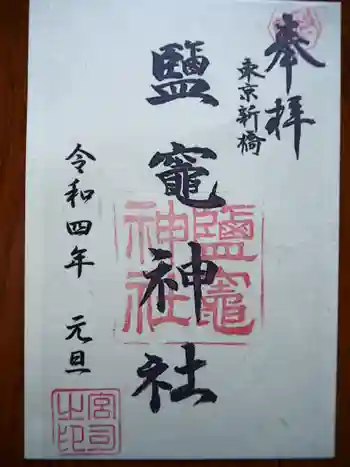 奉拝
東京新橋
鹽竈神社
鹽竈
神社
令和四年 元旦
宮司
之印